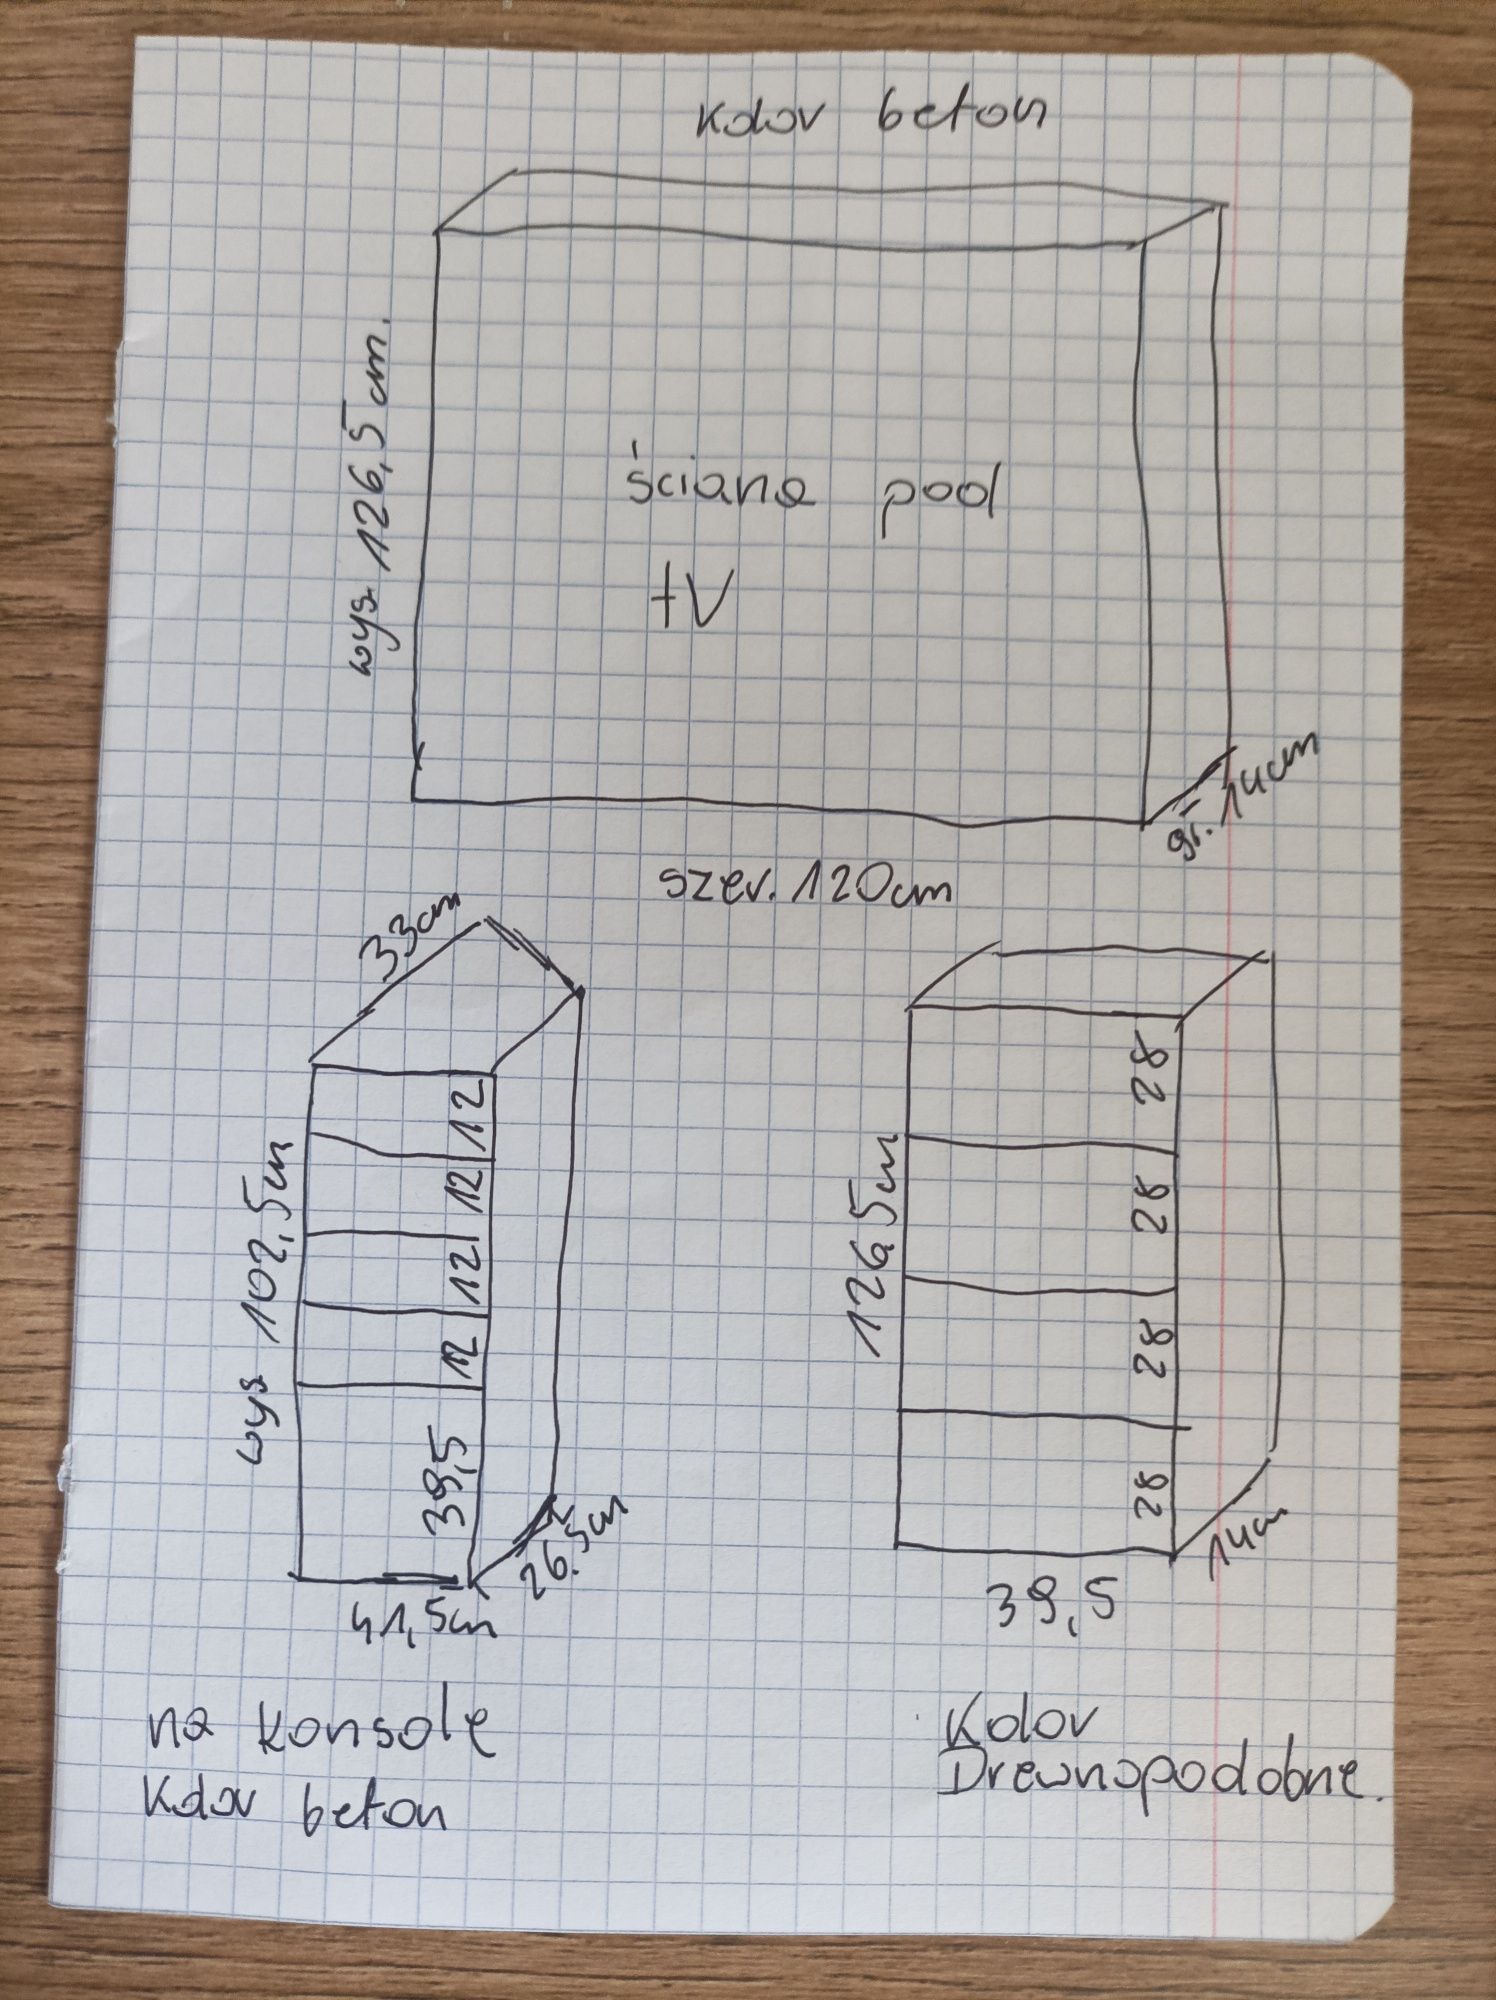 Kolor beton
wys. 126,5 cm.
ściana pod
tV
gr. 14cm
szer. 120cm
33cm
wys 102,5cm
12
12
12
12
39,5
41,5cm
26.5cm
na konsolę
Kolor beton
126,5cm
28
28
28
28
14cm
39,5
Kolor
Drewnopodobne.